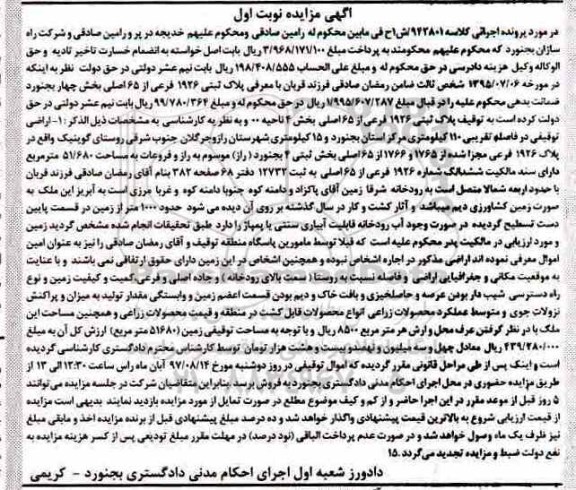 آگهی مزایده نوبت اول
در مورد پرونده اجرائی کلاسه ۹۴۲۸۰۱/ش۱ح فی مابین محکوم له رامین صادقی ومحکوم علیهم خدیجه در پر و رامین صادقی و شرکت راه
سازان بجنورد که محکوم علیهم محکومند به پرداخت مبلغ ۳/۹۶۸/۱۷۱/۱۰۰ ریال بابت اصل خواسته به انضمام خسارت تاخیر تادیه و حق
الوکاله وکیل هزینه دادرسی در حق محکوم له و مبلغ علی الحساب ۱۹۸/۴۰۸/۵۵۵ ریال بابت نیم عشر دولتی در حق دولت نظر به اینکه
در مورخه ۱۳۹۵/۰۷/۰۶ شخص ثالث ضامن رمضان صادقی فرزند قربان با معرفی پلاک ثبتی ۱۹۲۶ فرعی از ۶۵ اصلی بخش چهار بجنورد
ضمانت بدهی محکوم علیه را در قبال مبلغ ۱/۹۹۵/۶۰۷/۲۸۷ ریال در حق محکوم له و مبلغ ۹۹/۷۸۰/۳۶۴ ریال بابت نیم عشر دولتی در حق
دولت کرده است به توقیف پلاک ثبتی ۱۹۲۶ فرعی از ۶۵ اصلی بخش ۴ ناحیه ۰۰ و به نظر به کارشناسی به مشخصات ذیل الذکر : ۱- اراضی
توقیفی در فاصله تقریبی ۱۱۰ کیلومتری مرکز استان بجنورد و ۱۵ کیلومتری شهرستان رازوجرگلان جنوب شرقی روستای گوینیک واقع در
پلاک ۱۹۲۶ فرعی مجزا شده از ۱۷۶۵ و ۱۷۶۶ از ۶۵ اصلی بخش ثبتی ۴ بجنورد ( راز) موسوم به راز و فروعات به مساحت ۵۱/۶۸۰ مترمربع
دارای سند مالکیت ششدانگ شماره ۱۹۲۶ فرعی از ۶۵ اصلی به ثبت ۱۲۷۳۳ دفتر ۶۸ صفحه ۳۸۲ بنام آقای رمضان صادقی فرزند قربان
با حدود اربعه شمالا متصل است به رودخانه شرقا زمین آقای پاکزاد و دامنه کوه جنوبا دامنه کوه و غربا مرزی است به آبریز این ملک به
صورت زمین کشاورزی دیم میباشد و آثار کشت و کار در سال گذشته بر روی آن دیده می شود حدود ۱۰۰۰ متر از زمین در قسمت پایین
دست تسطیح گردیده در صورت وجود آب رودخانه قابلیت آبیاری سنتی یا پمپاژ را دارد طبق تحقیقات انجام شده مشخص گردید زمین
و مورد ارزیابی در مالکیت پدر محکوم علیه است که قبلا توسط مامورین پاسگاه منطقه توقیف و آقای رمضان صادقی را نیز به عنوان امین
اموال معرفی نموده اند اراضی مذکور در اجاره اشخاص نبوده و همچنین اشخاص در این زمین دارای حقوق ارتفاقی نمی باشند و با عنایت
به موقعیت مکانی و جغرافیایی اراضی و فاصله نسبت به روستا ( سمت بالای رودخانه ) و جاده اصلی و فرعی کمیت و کیفیت زمین و نوع
راه دسترسی شیب دار بودن عرصه و حاصلخیزی و بافت خاک و دیم بودن قسمت اعضم زمین و وابستگی مقدار تولید به میزان و پراکنش
نزولات جوی و متوسط عملکرد محصولات زراعی انواع محصولات قابل کشت در منطقه و قیمت محصولات زراعی و همچنین مساحت این
ملک با در نظر گرفتن عرف محل و ارزش هر متر مربع ۸۵۰۰ ریال و با توجه به مساحت توقیفی زمین (۵۱۶۸۰ متر مربع) ارزش کل آن به مبلغ
۴۳۹/۲۸۰/۰۰۰ ریال معادل چهل و سه میلیون و نهصد و بیست و هشت هزار تومان توسط کارشناس محترم دادگستری کارشناسی گردیده
است و اینک پس از طی مراحل قانونی مقرر گردیده که اموال توقیفی در روز دوشنبه مورخ ۹۷/۰۸/۱۴ آبان ماه راس ساعت ۱۲:۳۰ الی ۱۳ از
طریق مزایده حضوری در محل اجرای احکام مدنی دادگستری بجنورد به فروش برسد بنابراین متقاضیان شرکت در جلسه مزایده می توانند
۵ روز قبل از موعد مقرر در این اجرا حاضر و از کم و کیف موضوع مطلع در صورت تمایل از مورد مزایده بازدید نمایند بدیهی است مزایده
از قیمت ارزیابی شروع به بالاترین قیمت پیشنهادی واگذار خواهد شد و ده درصد مبلغ پیشنهادی قبل از برنده مزایده اخذ و مابقی مبلغ
نیز ظرف یک ماه وصول خواهد شد و در صورت عدم پرداخت الباقی (نود درصد) در مهلت مقرر مبلغ تودیعی پس از کسر هزینه مزایده به
نفع دولت ضبط و مزایده تجدید می گردد .۱۵
دادورز شعبه اول اجرای احکام مدنی دادگستری بجنورد - کریمی